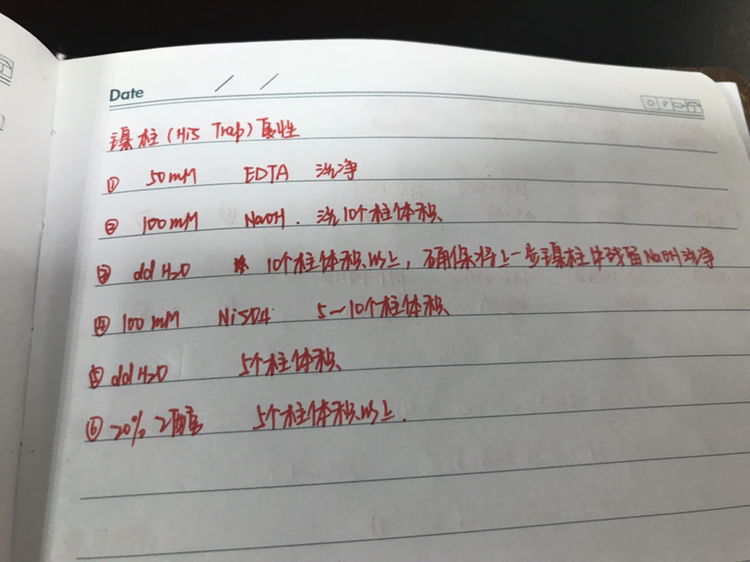 Date / /
镍柱(His Trap)复性
① 50mM EDTA 洗净
② 100mM NaOH. 洗10个柱体积
③ dd H2O 10个柱体积以上,确保将上一步镍柱中残留NaOH洗净
④ 100mM NiSO4. 5~10个柱体积
⑤ dd H2O 5个柱体积
⑥ 20% 乙醇 5个柱体积以上.